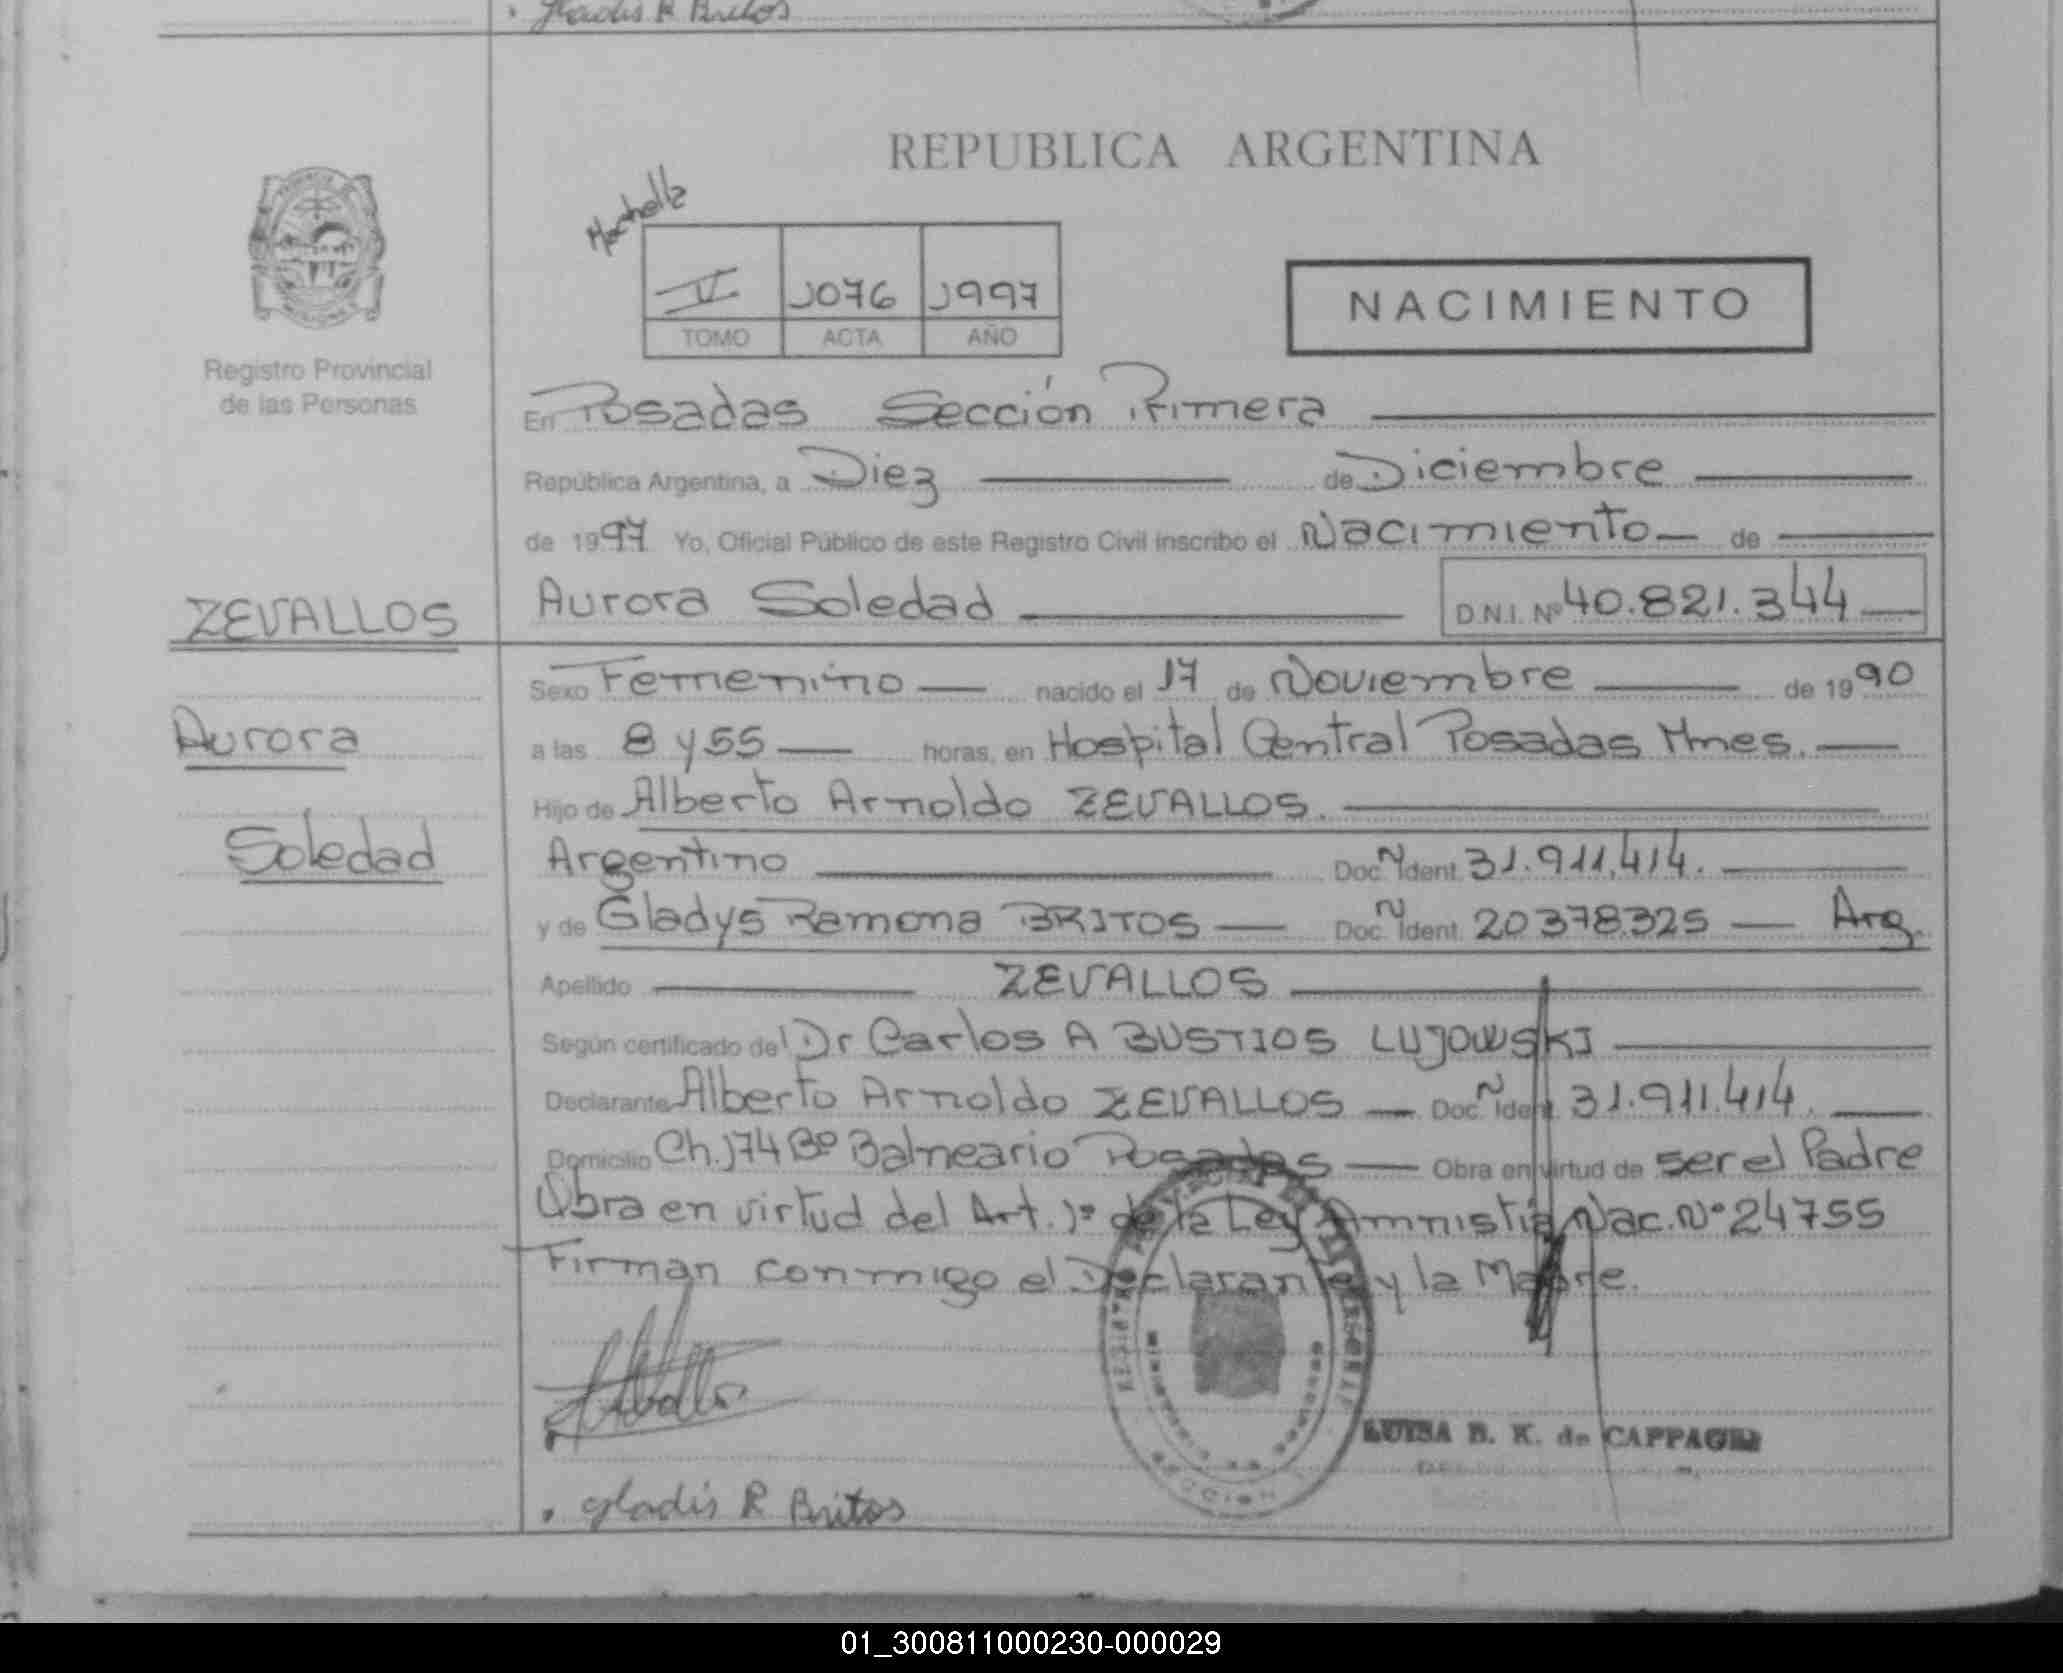 . Gladis R Britos
REPUBLICA ARGENTINA
V 1076 1997
TOMO ACTA AÑO
NACIMIENTO
Registro Provincial
de las Personas
En Posadas Sección Primera
República Argentina, a Diez de Diciembre
de 1997 Yo, Oficial Público de este Registro Civil inscribo el Nacimiento de
ZEVALLOS
Aurora
Soledad
Aurora Soledad D.N.I. Nº 40.821.344
Sexo Femenino nacido el 17 de Noviembre de 1990
a las 8 y 55 horas, en Hospital Central Posadas Mnes.
Hijo de Alberto Arnoldo ZEVALLOS.
Argentino Doc. N Ident. 31.911.414.
y de Gladys Ramona BRITOS Doc. N Ident. 20378325 Arg.
Apellido ZEVALLOS
Según certificado del Dr Carlos A BUSTIOS LUJOWSKI
Declarante Alberto Arnoldo ZEVALLOS Doc. N Ident. 31.911.414.
Domicilio Ch. 174 Bº Balneario Posadas Obra en virtud de ser el Padre
Obra en virtud del Art. 1º de la Ley Amnistia Nac. Nº 24755
Firman conmigo el Declarante y la Madre.
LUISA B. K. de CAPPAGLI
. Gladis R Britos
01_300811000230-000029